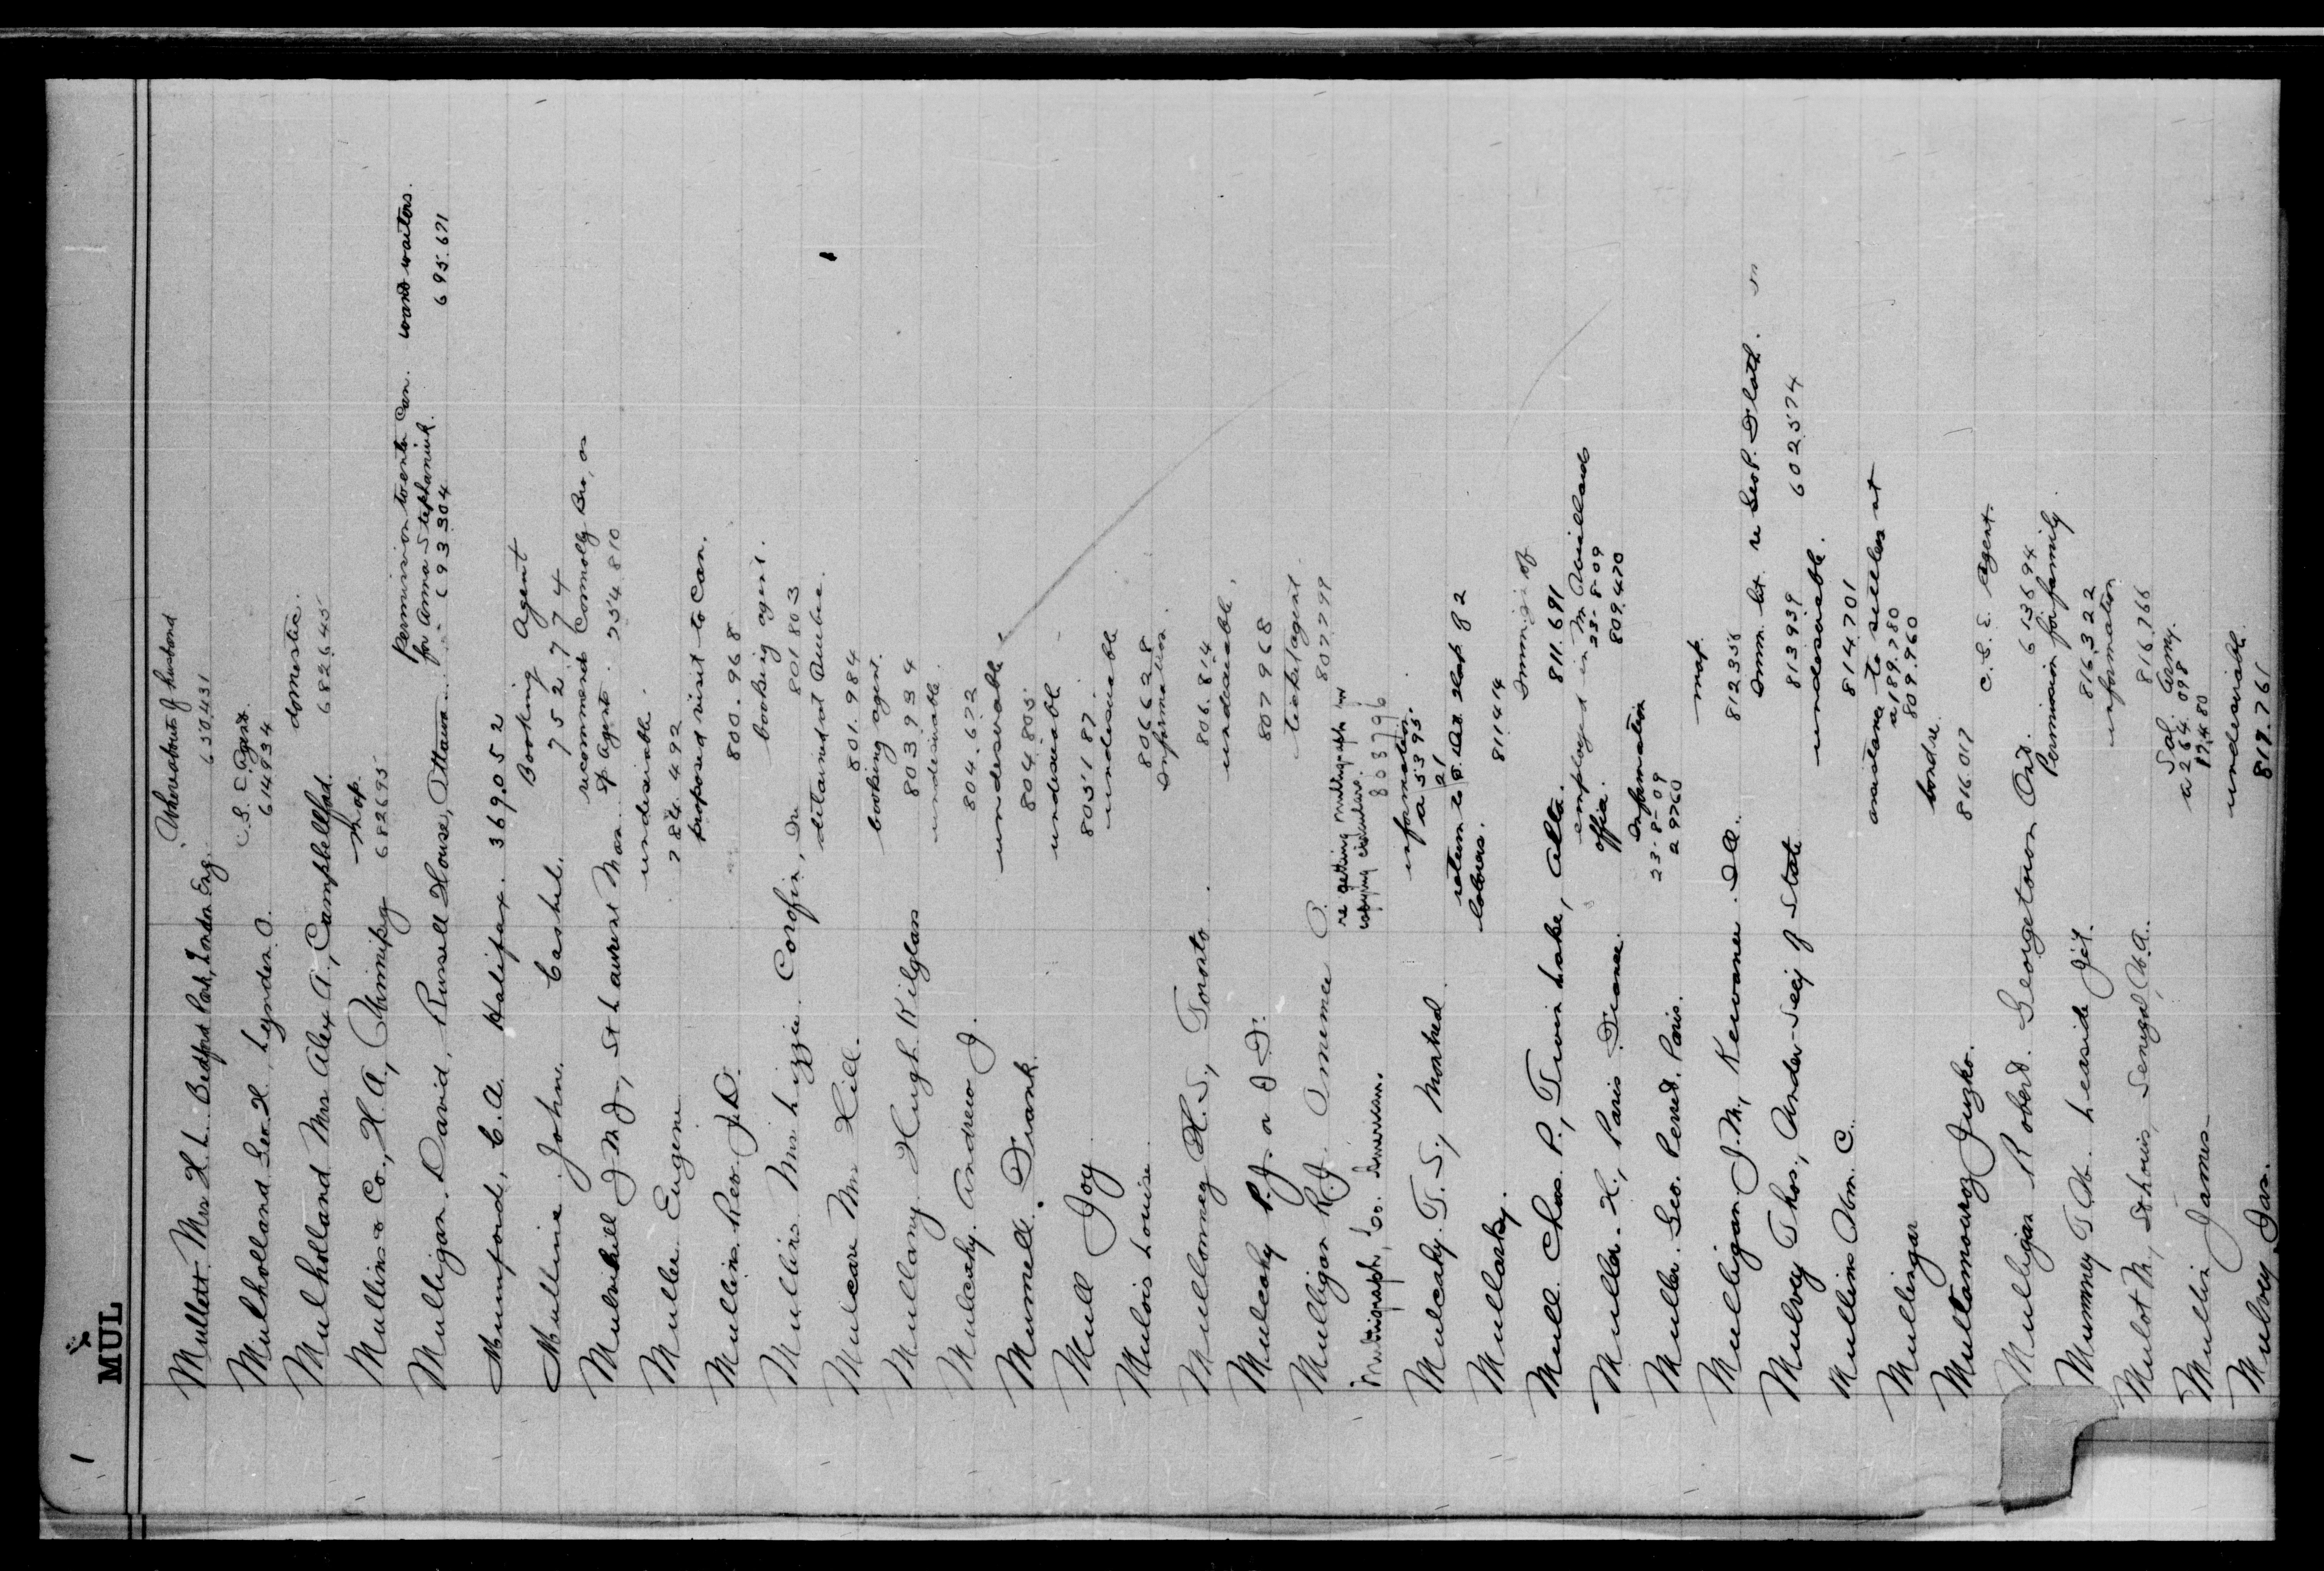 1
MUL
Mullett. Mrs H. L. Bedford Park, London Eng. Whereabouts of husband
650431
Mulholland Geo. H. Lynden O. C. E. Agent.
614934
Mulholland Mrs Alex A., Campbellford domestic.
682645
Mullins & Co., H. A., Winnipeg map.
682695
Mulligan. David, Russell House, Ottawa permission to enter Can. want waiters.
for Anna Stephaniuk. 693304 695.671
Mumford, C. A. Halifax. 369.052
Mullins. John. Cashel. Booking Agent
752.774
Mulvihill J M J, St Laurent Man. recommends Connolly Bro, as
sp. Agent. 754810
Muller Eugene undesirable.
784.492
Mullins Rev. J. D. proposed visit to Can.
800.968
Mullins Mrs Lizzie Corofin, Ire booking agent.
801803
Mulcare Mrs Hill. detained at Quebec.
801.984
Mullany Hugh Kilglass booking agent.
803934
Mulcahy. Andrew J. undesirable.
804.672
Mumell. Frank. undesirable.
804.805
Mull Joy undesirable
805187
Mulois Louise undesirable
806628
Mullowney H. S., Toronto. Information.
806.814
Mulcahy P. J. a D D. undesirable.
807968
Mulligan R. J. ticket agent.
807799
Multigraph Co. American. re getting multigraph for
copying circulars.
803796
Mulcahy. T. S., Montreal information.
a 5395
21
Mullarky. return to S. of 2
labourers.
811414
Mull. Chas. P., Twin Lake, Alta. Immig'n of
811.691
Muller. H., Paris France. employed in M
office. 23-8-09
809.470
Muller. Geo. Perrd. Paris. Information
23-8-09
29760
Mulligan J. M., Kewanee. Ill. map.
812358
Mulvey Thos., Under-Sec'y of State Imm. let. re Geo P.
813939 602574
Mullins Wm. C. undesirable.
814701
Mullingar assistance to settlers at
a 189.780
809.960
Multamowroz Juzko. bond re
816.017
Mulligan Robert. Georgetown Ont. C. E. Agent.
613694
Mummey T. W. Leaside Jct. Permission for family.
816.322
Mulot M., St Louis, Senegal, W. A. information
816.766
Mullin James Sal Army.
a 264.098
87480
Mulvey Jas. undesirable
817.761